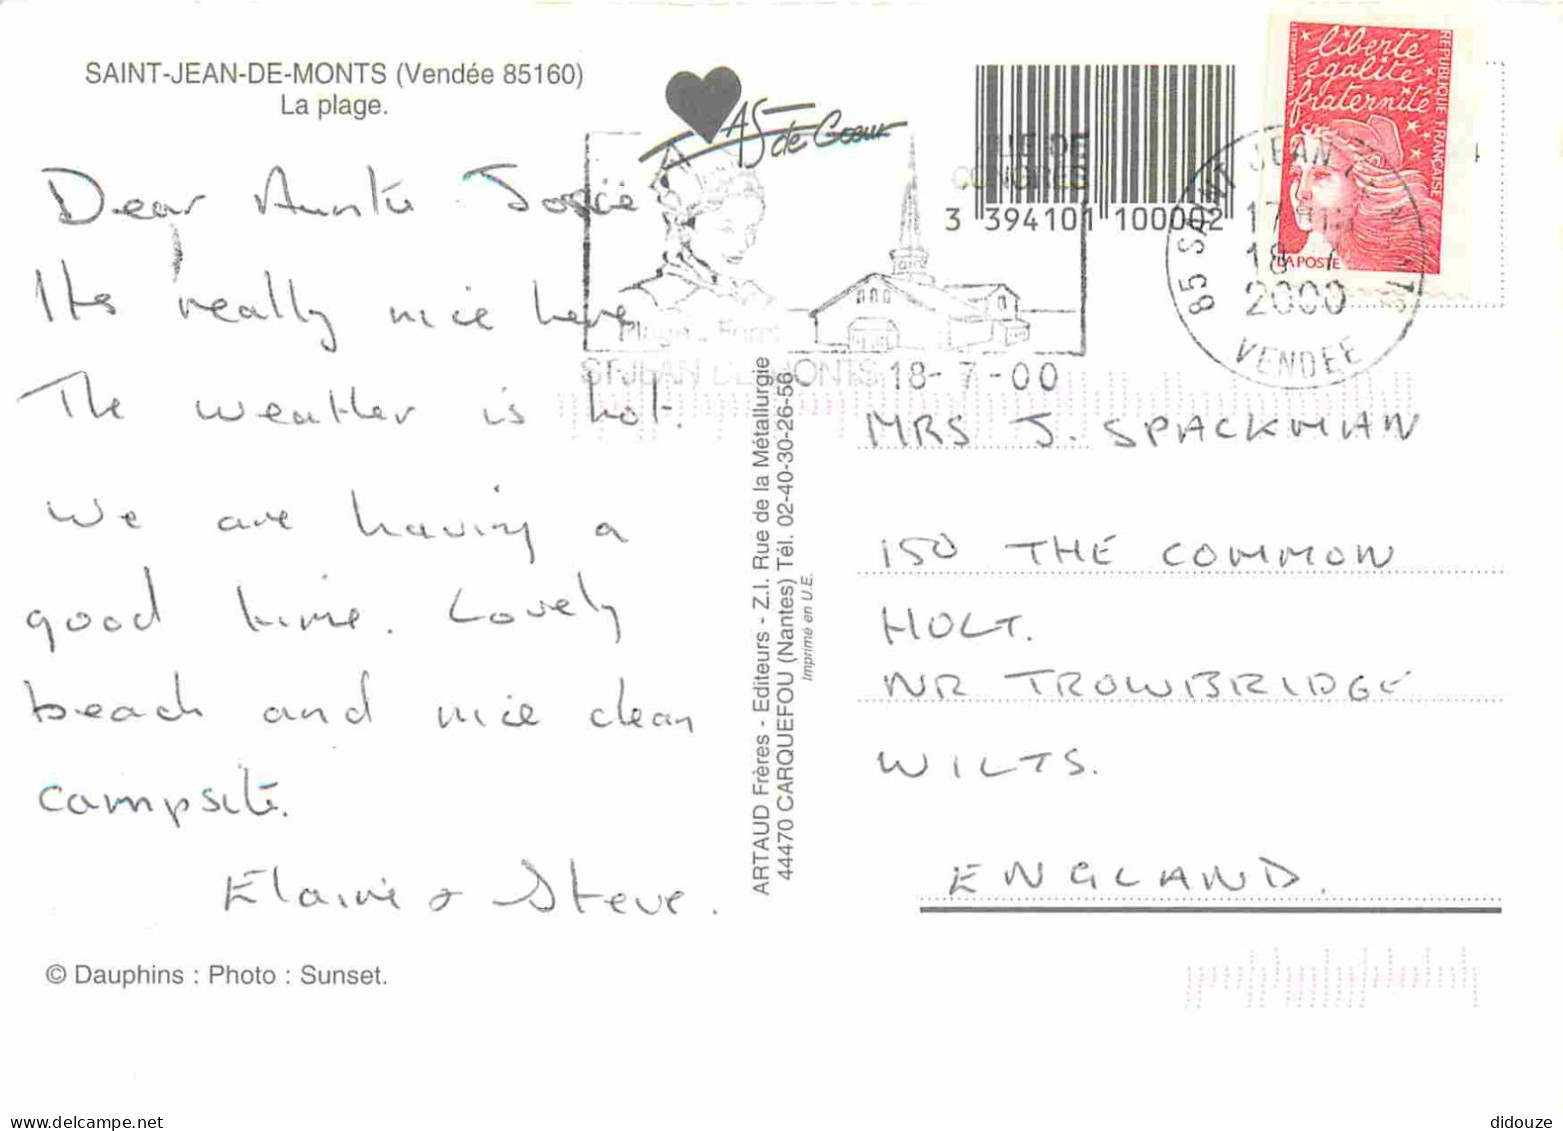 SAINT-JEAN-DE-MONTS (Vendée 85160)
La plage.
AS de Coeur
Dear Auntie Josie
Its really nice here
The weather is hot.
We are having a
good time. Lovely
beach and nice clean
campsite.
Elaine & Steve.
© Dauphins : Photo : Sunset.
CONGRES
ST JEAN DE MONTS 18-7-00
ARTAUD Frères - Editeurs - Z.I. Rue de la Métallurgie
44470 CARQUEFOU (Nantes) Tél. 02-40-30-26-56
Imprimé en U.E.
3 394101 100002
liberté
égalité
fraternité
RÉPUBLIQUE FRANÇAISE
LA POSTE
85 SAINT JEAN DE MONTS
18-7
2000
VENDEE
MRS J. SPACKMAN
150 THE COMMON
HOLT.
NR TROWBRIDGE
WILTS.
ENGLAND.
didouze